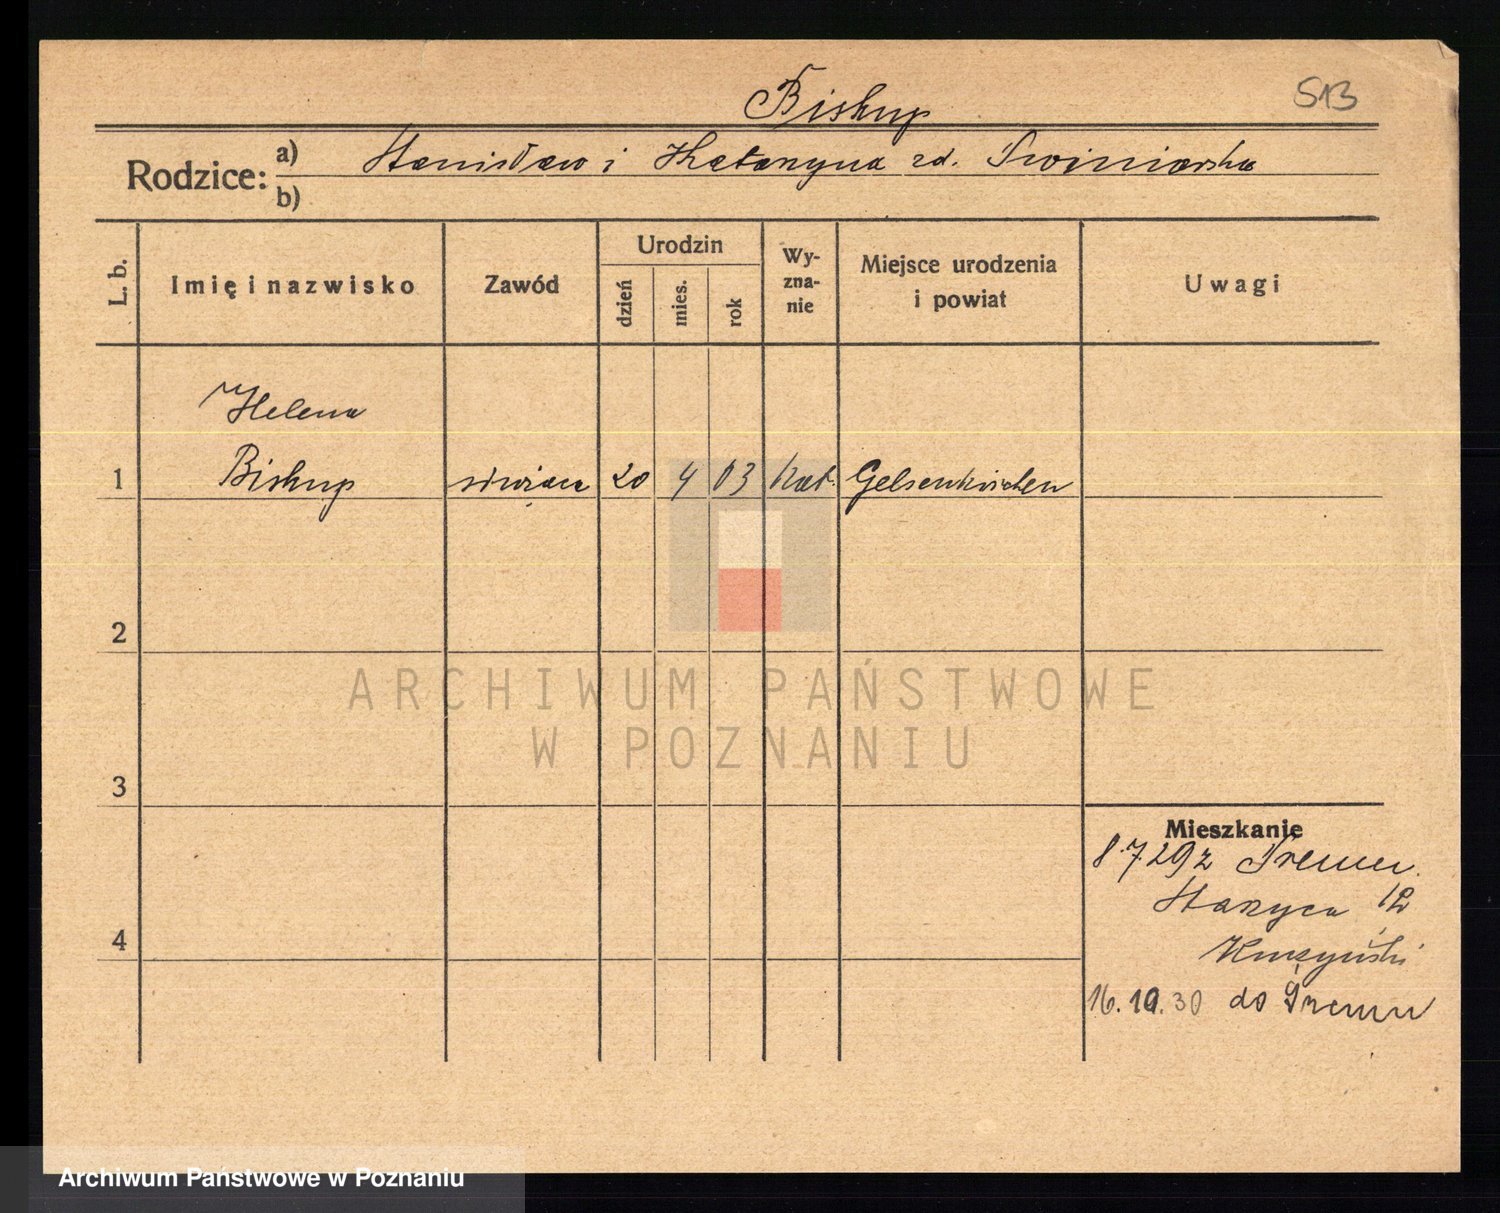 Biskup
513
Rodzice: a) Stanisław i Katarzyna zd. Świniarska
b)
L. b.
Imię i nazwisko
Zawód
Urodzin
dzień
mies.
rok
Wy-
zna-
nie
Miejsce urodzenia
i powiat
Uwagi
Helena
1 Biskup służąca 20 4 03 kat. Gelsenkirchen
2
ARCHIWUM PAŃSTWOWE
W POZNANIU
3
Mieszkanie
8.7.29 z Śremu.
Staszyca 12
4
16.10.30 do Śremu
Archiwum Państwowe w Poznaniu